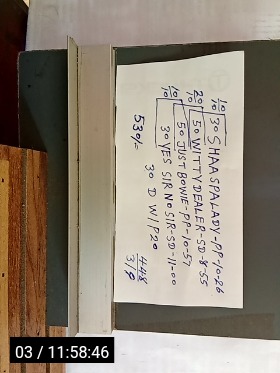 10/10 30 SHAASPALADY-PP-10-26
20/10 50 WITTYDEALER-SD-8-55
10/10 50 JUSTBOWIE-PP-10-57
30 YES SIR NO SIR-SD-11-00
30 D W/P20
530/=
448
03 / 11:58:46